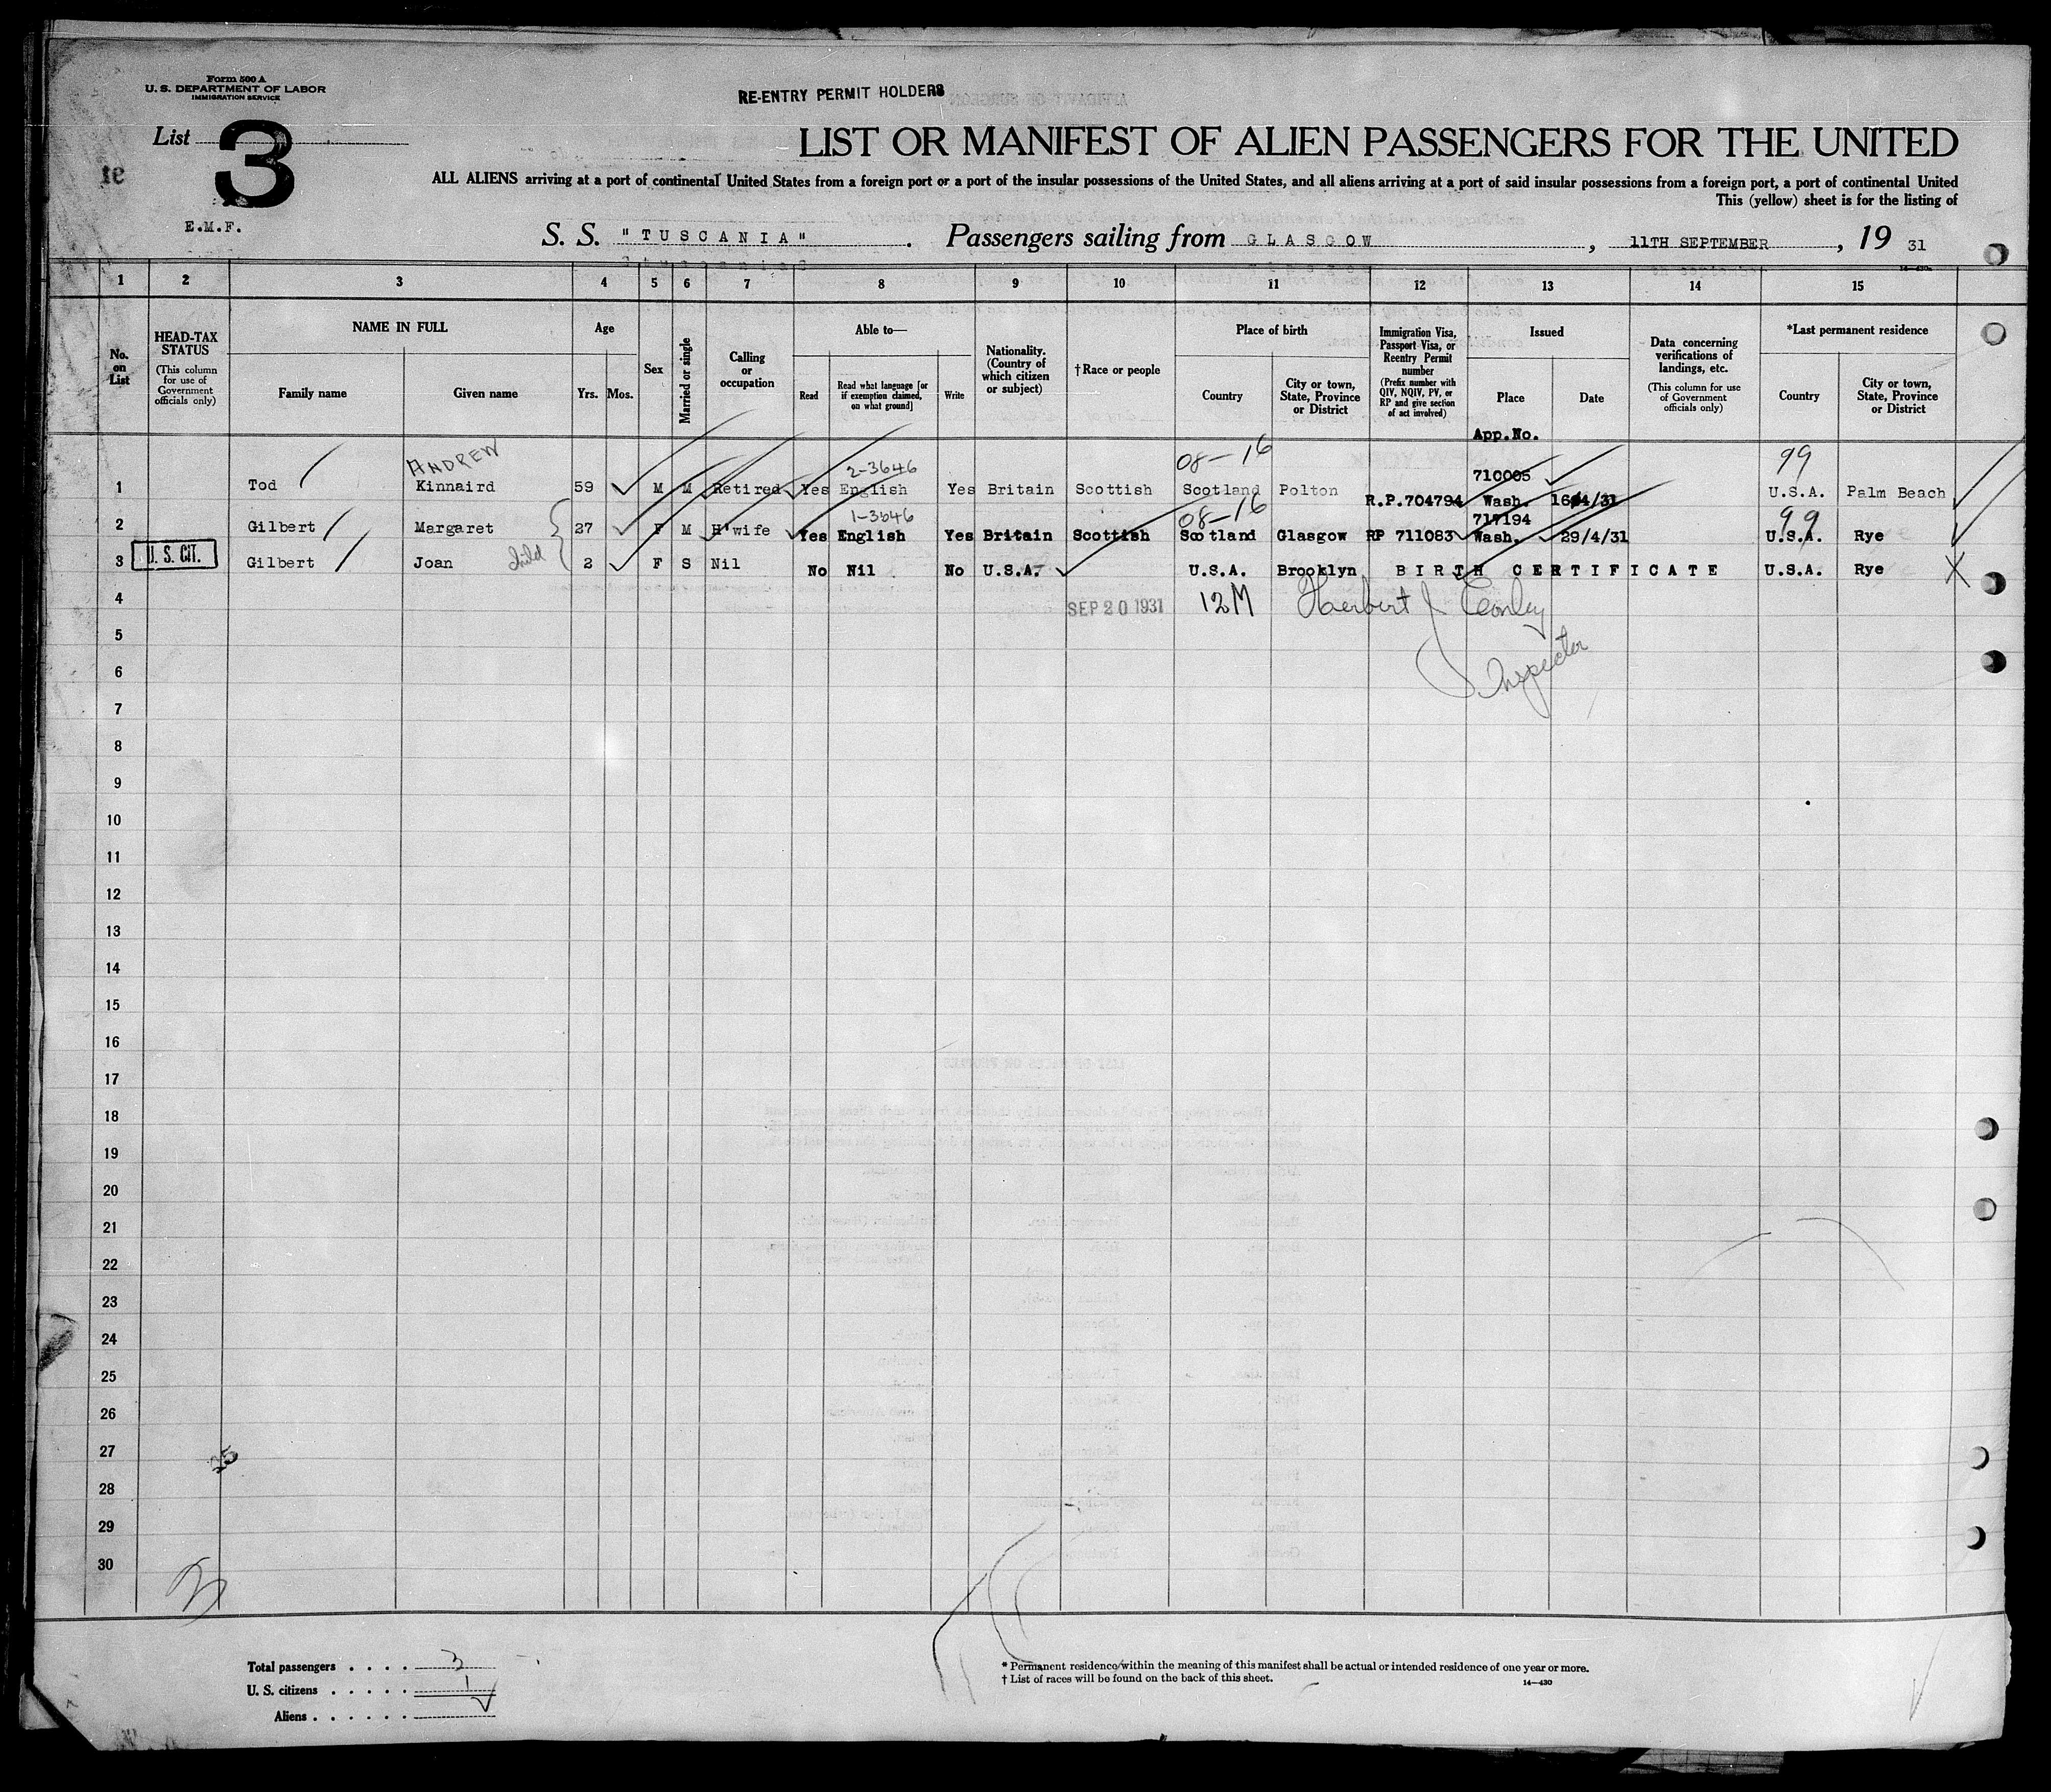 Form 500 A
U. S. DEPARTMENT OF LABOR
IMMIGRATION SERVICE
RE-ENTRY PERMIT HOLDERS
List 3
LIST OR MANIFEST OF ALIEN PASSENGERS FOR THE UNITED
ALL ALIENS arriving at a port of continental United States from a foreign port or a port of the insular possessions of the United States, and all aliens arriving at a port of said insular possessions from a foreign port, a port of continental United
This (yellow) sheet is for the listing of
E.M.F.
S. S. "TUSCANIA". Passengers sailing from GLASGOW, 11TH SEPTEMBER, 19 31
14—430
1 2 3 4 5 6 7 8 9 10 11 12 13 14 15
No. on List
HEAD-TAX STATUS
(This column for use of Government officials only)
NAME IN FULL
Family name
Given name
Age
Yrs. Mos.
Sex
Married or single
Calling or occupation
Able to—
Read
Read what language [or if exemption claimed, on what ground]
Write
Nationality. (Country of which citizen or subject)
†Race or people
Place of birth
Country
City or town, State, Province or District
Immigration Visa, Passport Visa, or Reentry Permit number
(Prefix number with QIV, NQIV, PV, or RP and give section of act involved)
Issued
Place
Date
Data concerning verifications of landings, etc.
(This column for use of Government officials only)
*Last permanent residence
Country
City or town, State, Province or District
App.No.
ANDREW 2-3646 08-16 710005 99
1 Tod Kinnaird 59 M M Retired Yes English Yes Britain Scottish Scotland Polton R.P.704794 Wash. 16/4/31 U.S.A. Palm Beach
1-3646 08-16 717194 99
2 Gilbert Margaret 27 F M H'wife Yes English Yes Britain Scottish Scotland Glasgow RP 711083 Wash. 29/4/31 U.S.A. Rye
3 U. S. CIT. Gilbert Joan child 2 F S Nil No Nil No U.S.A. U.S.A. Brooklyn BIRTH CERTIFICATE U.S.A. Rye
4 SEP 20 1931 12M Herbert J Conley
5
6 Inspector
7
8
9
10
11
12
13
14
15
16
17
18
19
20
21
22
23
24
25
26
27
28
29
30
Total passengers . . . . 3
U. S. citizens . . . . . 1
Aliens . . . . . .
* Permanent residence within the meaning of this manifest shall be actual or intended residence of one year or more.
† List of races will be found on the back of this sheet.
14—430